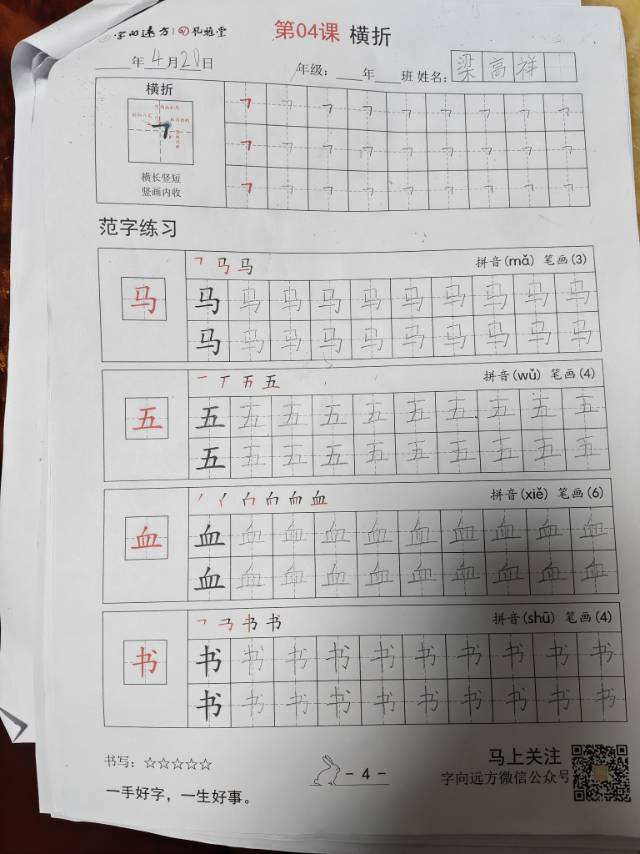 字向远方 礼雅堂 第04课 横折
年4月20日 年级: 年 班 姓名: 梁高祥
横折
横长竖短
竖画内收
范字练习
马 拼音(mǎ) 笔画(3)
马 马 马 马 马 马 马 马 马 马 马
马 马 马 马 马 马 马 马 马 马
五 拼音(wǔ) 笔画(4)
五 五 五 五 五 五 五 五 五 五 五
五 五 五 五 五 五 五 五 五 五
血 拼音(xiě) 笔画(6)
血 血 血 血 血 血 血 血 血 血 血
血 血 血 血 血 血 血 血 血 血
书 拼音(shū) 笔画(4)
书 书 书 书 书 书 书 书 书 书 书
书 书 书 书 书 书 书 书 书 书
书写: ☆☆☆☆☆
一手好字，一生好事。
- 4 -
马上关注
字向远方微信公众号